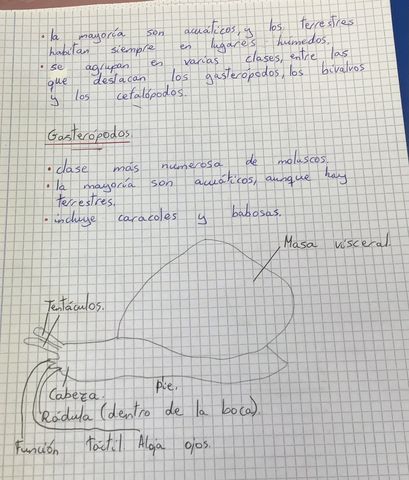 • la mayoría son acuáticos, y los terrestres
habitan siempre en lugares húmedos.
• se agrupan en varias clases, entre las
que destacan los gasterópodos, los bivalvos
y los cefalópodos.
Gasterópodos
• clase más numerosa de moluscos.
• la mayoría son acuáticos, aunque hay
terrestres.
• incluye caracoles y babosas.
Masa visceral.
Tentáculos.
Pie.
Cabeza.
Rádula (dentro de la boca).
Función táctil Aloja ojos.